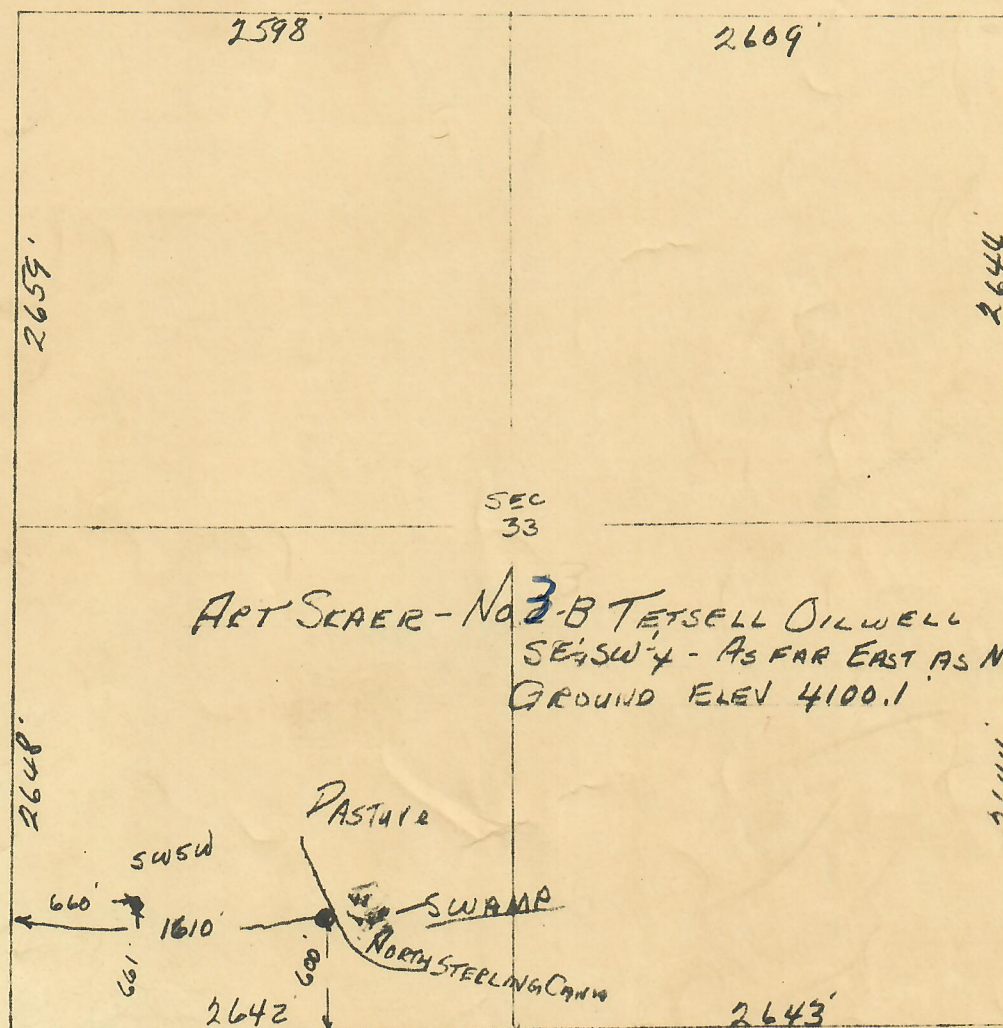 2598'
2609'
2659'
2644
SEC
33
ART SKAER - No. 3-B TETSELL OILWELL
SE¼SW¼ - AS FAR EAST AS
GROUND ELEV 4100.1'
2648'
PASTURE
SWSW
660'
1610'
SWAMP
NORTH STERLING
661'
600'
2642
2643'